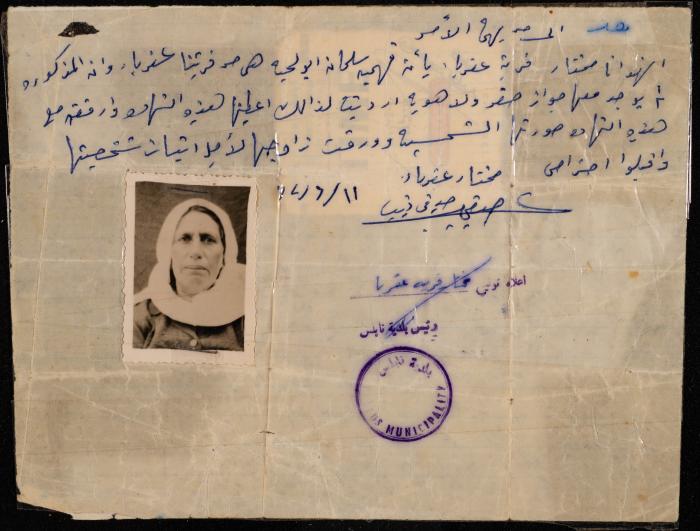 الى من يهمه الأمر
اشهد انا مختار قرية عقربا، بأنه فهميه سلمان ابو لحيه هي من قريتنا عقربا، وان المذكوره
لا يوجد معها جواز سفر ولا هويه اردنية لذالك اعطيتها هذه الشهاده وارفقه مع
هذه الشهاده صورتها الشمسيه وورقت زواجها لأجل اثبات شخصيتها
واقبلوا احترامي
مختار عقربا
٦٧/٦/١١
صدقي
اعلاه توقيع مختار قرية عقربا
رئيس بلدية نابلس
بلدية نابلس
US MUNICIPALITY